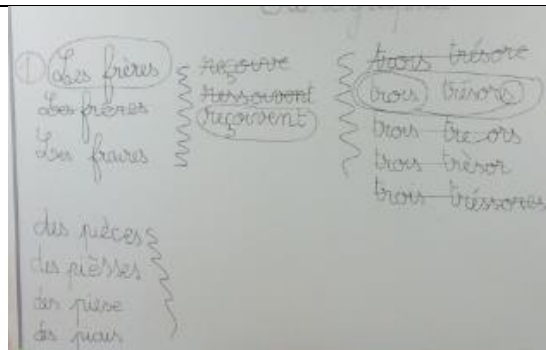 ① Les frères
Les frères
Les fraires
reçouve
ressouvent
reçoivent
trois trésore
trois trésors
trois tre-ors
trois trèsor
trois tréssores
des pièces
des pièsses
des piese
des